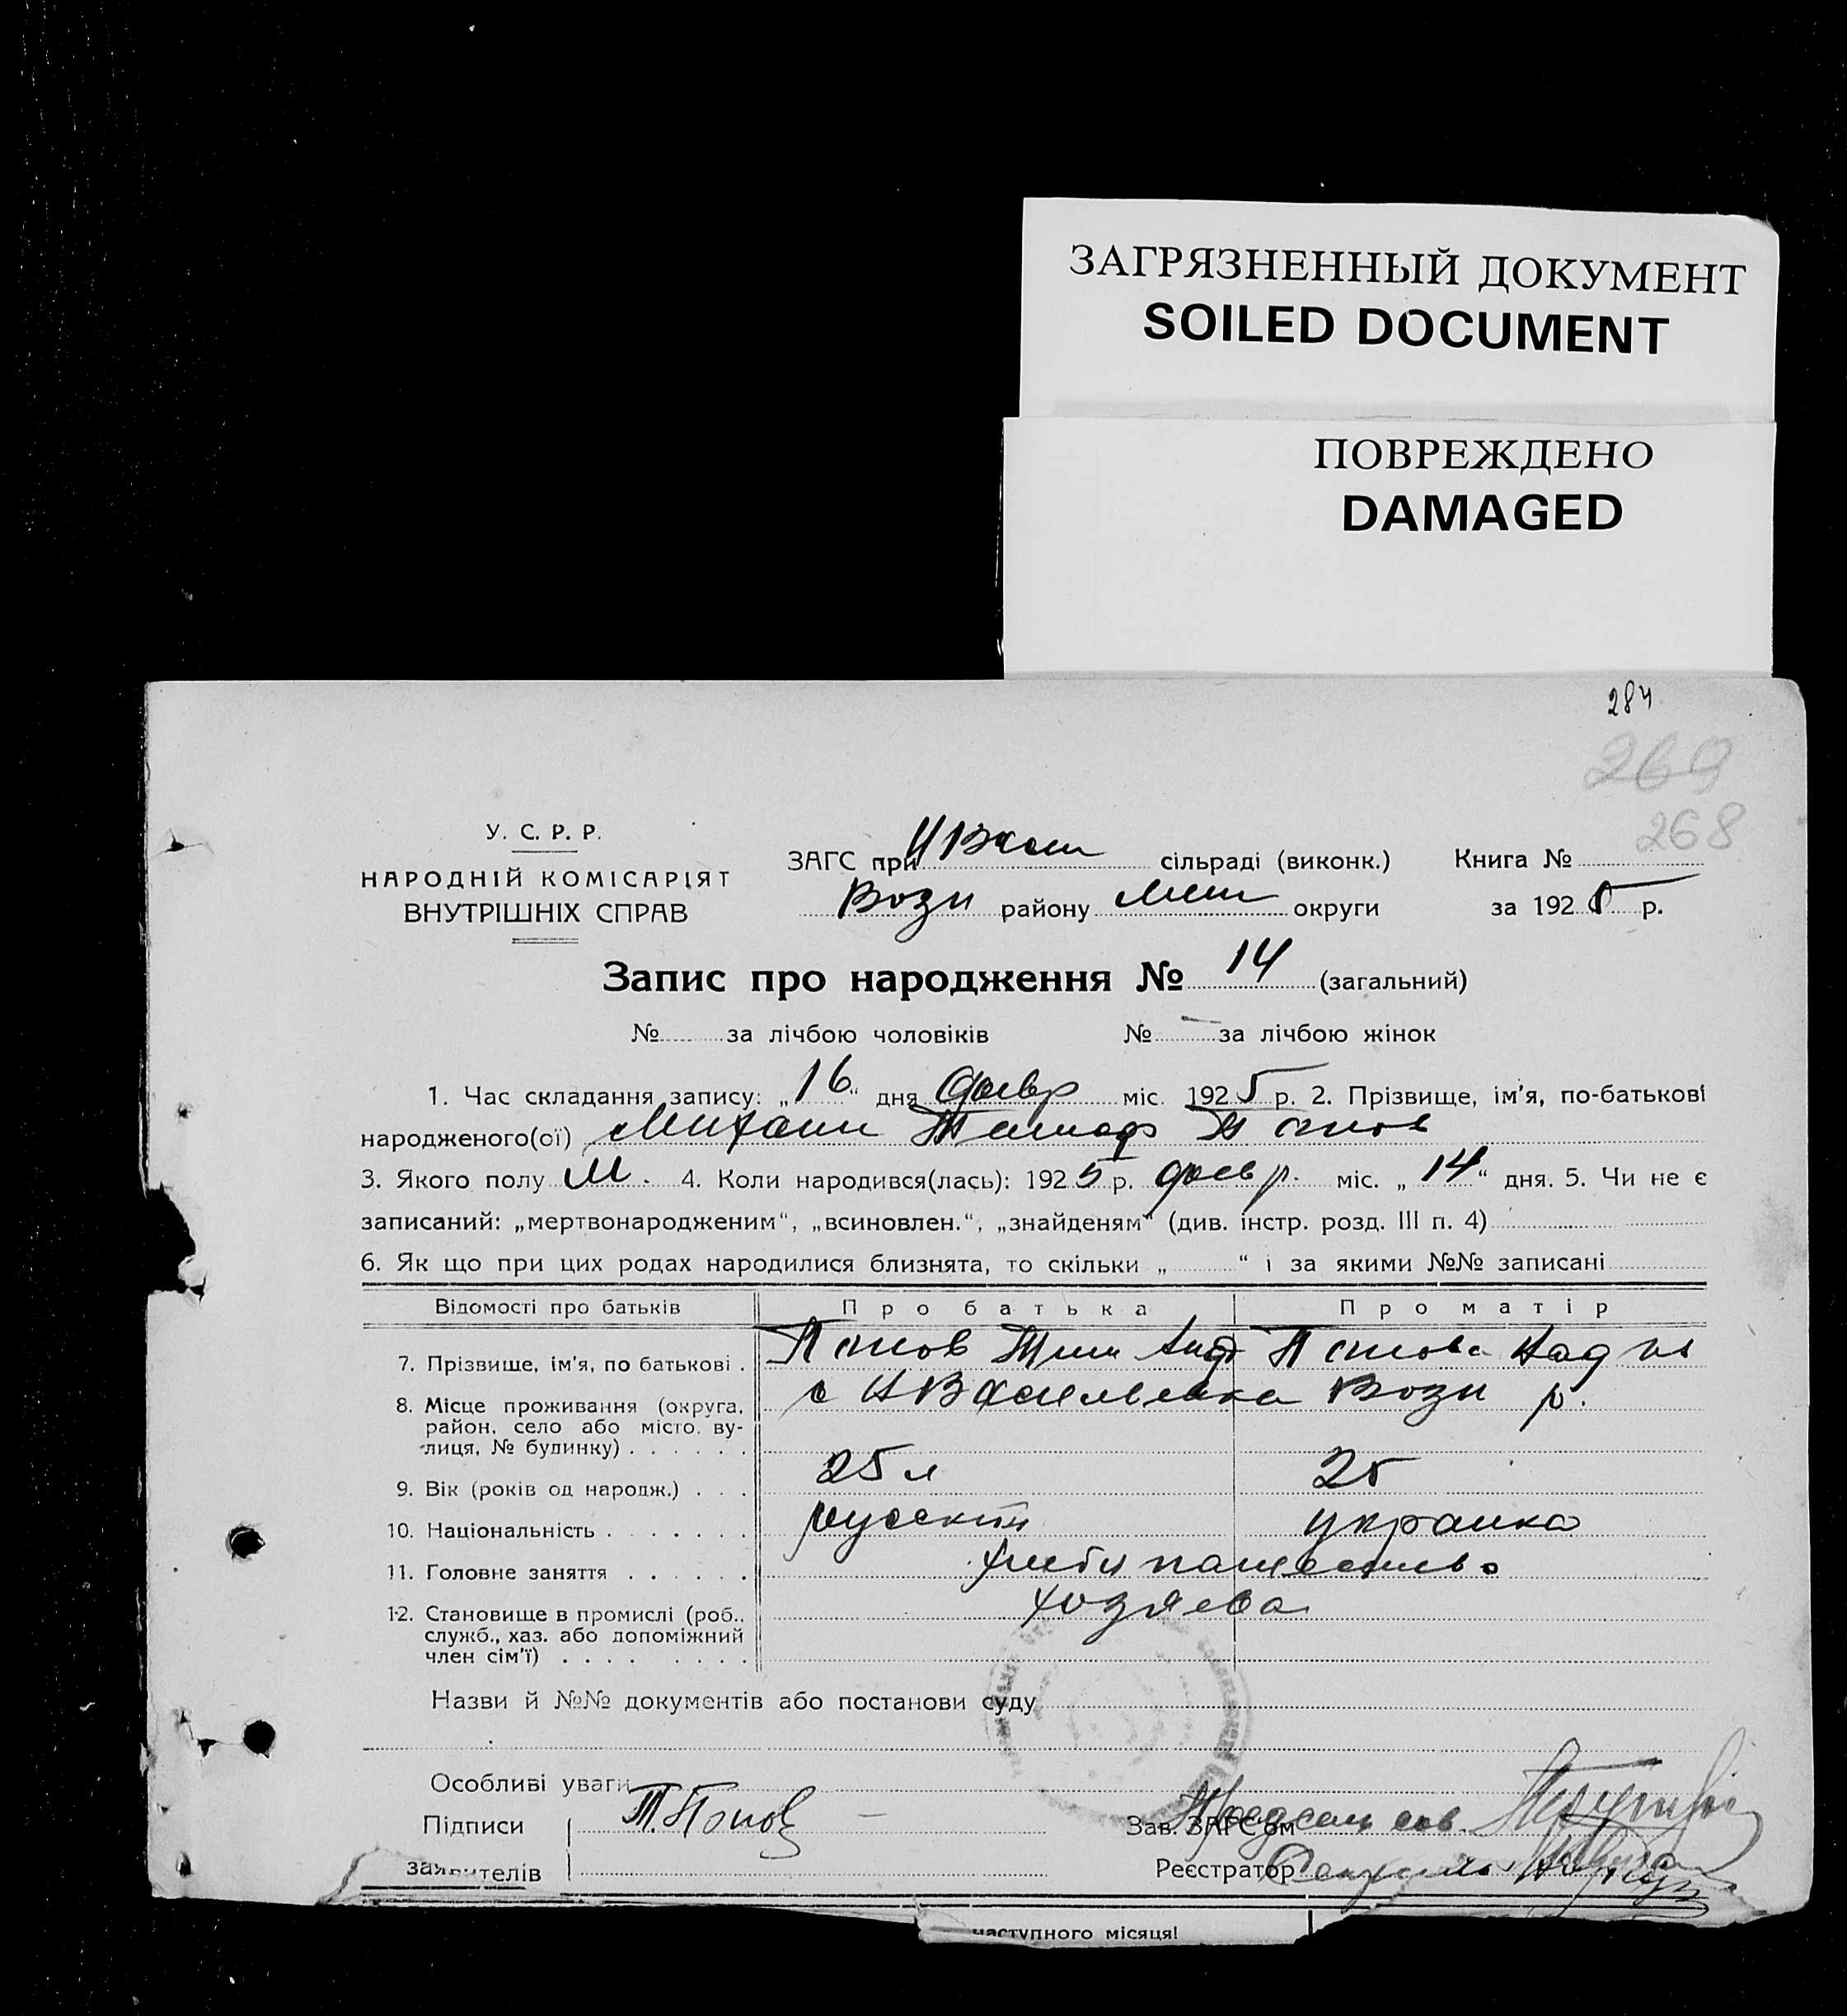 ЗАГРЯЗНЕННЫЙ ДОКУМЕНТ
SOILED DOCUMENT
ПОВРЕЖДЕНО
DAMAGED
284
269
268
У. С. Р. Р.
НАРОДНІЙ КОМІСАРІЯТ
ВНУТРІШНІХ СПРАВ
ЗАГС при сільраді (виконк.) Книга №
Возн району округи за 1925 р.
Запис про народження № 14 (загальний)
№ за лічбою чоловіків № за лічбою жінок
1. Час складання запису: „16“ дня февр міс. 1925 р. 2. Прізвище, ім'я, по-батькові
народженого(ої) Михаил Попов
3. Якого полу М. 4. Коли народився(лась): 1925 р. февр. міс. „14“ дня. 5. Чи не є
записаний: „мертвонародженим“, „всиновлен.“, „знайденям“ (див. інстр. розд. III п. 4)
6. Як що при цих родах народилися близнята, то скільки „ “ і за якими №№ записані
Відомості про батьків Про батька Про матір
7. Прізвище, ім'я, по батькові . Попов Тим Попова Над
8. Місце проживання (округа, район, село або місто, вулиця, № будинку) с НВасильевка Возн р.
9. Вік (років од народж.) . . . 25 л 25
10. Національність . . . . . . . русский украинка
11. Головне заняття . . . . . . хлебопашество
12. Становище в промислі (роб., служб., хаз. або допоміжний член сім'ї) . . . . . . . . хозяева
Назви й №№ документів або постанови суду
Особливі уваги
Підписи Т. Попов Зав. ЗАГС'ом Предсель сов.
заявителів Реєстратор
наступного місяця!